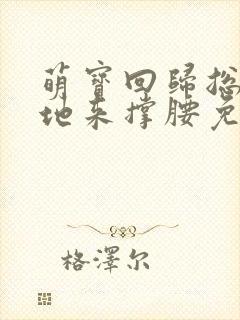 萌寶回歸總
地來撐腰免
格澤尔